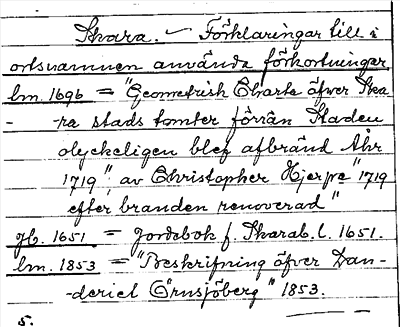 Skara. – Förklaringar till i
ortsnamnen använda förkortningar
lm. 1696 = "Geometrisk Charta öfver Ska
- ra stads tomter förrän Staden
olyckeligen blef afbränd Åhr
1719", av Christopher Hjerpe "1719
efter branden renoverad"
jb. 1651 = Jordebok f. Skarab.l. 1651.
lm. 1853 = "Beskrifning öfver Dan-
-deriel Örnsjöberg" 1853.
5.